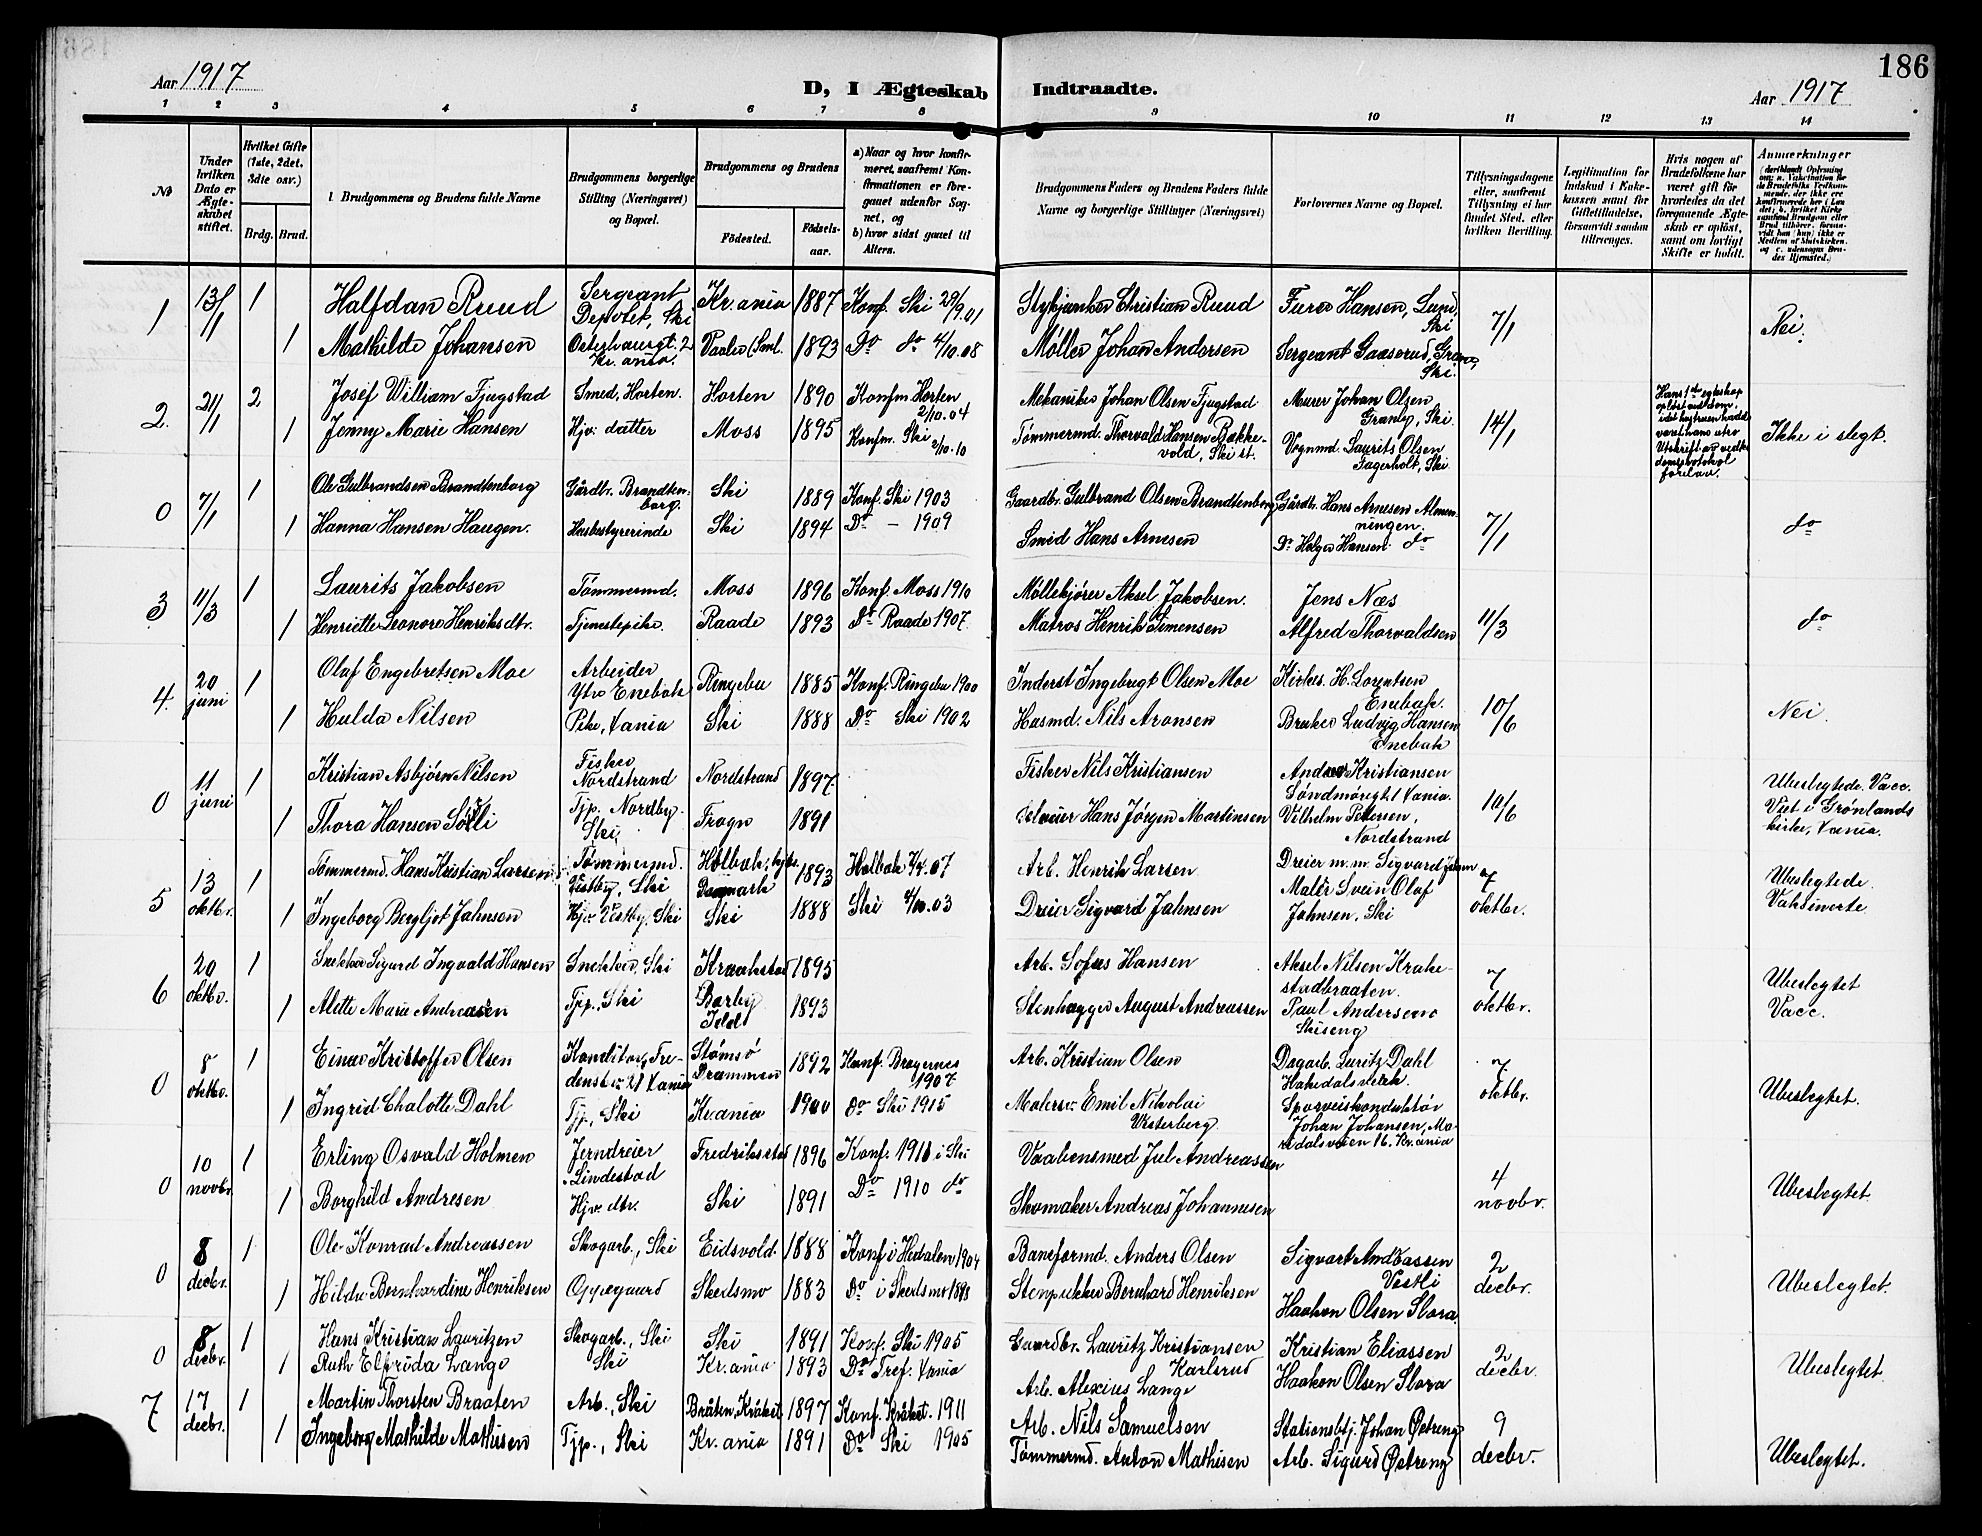 186
Aar 1917
D, I Ægteskab Indtraadte.
Aar 1917
1 2 3 4 5 6 7 8 9 10 11 12 13 14
№
Under hvilken Dato er Ægteskabet stiftet.
Hvilket Gifte (1ste, 2det, 3die osv.)
Brdg. Brud.
Brudgommens og Brudens fulde Navne
Brudgommens borgerlige Stilling (Næringsvei) og Bopæl.
Brudgommens og Brudens
Födested.
Födselsaar.
a) Naar og hvor konfirmeret, saafremt Konfirmationen er foregaaet udenfor Sognet, og
b) hvor sidst gaaet til Alters.
Brudgommens Faders og Brudens Faders fulde Navne og borgerlige Stillinger (Næringsvei)
Forlovernes Navne og Bopæl.
Tillysningsdagene eller, saafremt Tillysning ei har fundet Sted, efter hvilken Bevilling.
Legitimation for Indskud i Enkekassen samt for Giftetilladelse, forsaavidt saadan tiltrænges.
Hvis nogen af Brudefolkene har været gift før hvorledes da det foregaaende Ægteskab er opløst, samt om lovligt Skifte er holdt.
Anmærkninger
1 13/1 1 Halfdan Ruud Sergeant Depotet, Ski Kr.ania 1887 Konf. Ski 29/9.01 Stykjunker Christian Ruud Furer Hansen, Lund, Ski 7/1 Nei.
1 Mathilde Johansen Osterhausgt. 2 Kr.ania. Vaaler (Sml. 1893 Do do 4/10.08 Møller Johan Andersen Sergeant Gaaserud, Ski.
2. 21/1 2 Josef William Fjugstad Smed, Horten. Horten 1890 Konfm Horten 2/10.04 Mekaniker Johan Olsen Fjugstad Murer Johan Olsen Ski. 14/1 Hans 1ste egteskap opløst ved dom, idet hustruen hadde været hans utro Utskrift av vedk. domsprotokol forelaa. Ikke i slegt.
1 Jenny Marie Hansen Hjv. datter Moss 1895 Konfm. Ski 2/10.10 Tømmermd. Thorvald Hansen Bakkevold, Ski st. Vognmd. Laurits Olsen Fagerholt, Ski
0 7/1 1 Ole Gulbrandsen Brandtenborg Gårdbr. Brandtenborg. Ski 1889 Konf. Ski 1903 Gaardbr. Gulbrand Olsen Brandtenborg Gårdbr. Hans Arnesen Almenningen. 7/1 do
1 Hanna Hansen Haugen. Husbestyrerinde Ski 1894 Do - 1909 Smid Hans Arnesen Do Holger Hansen do
3 11/3 1 Laurits Jakobsen Tømmermd. Moss 1896 Konf. Moss 1910 Møllekjører Aksel Jakobsen. Jens Næs 11/3 do
1 Henriette Leonore Henriksdtr. Tjenestepike. Raade 1893 Do Raade 1907. Matros Henrik Simensen Alfred Thorvaldsen
4. 20 juni 1 Olaf Engebretsen Moe Arbeider Ytre Enebak Ringebu 1885 Konf. Ringebu 1900 Inderst Ingebregt Olsen Moe Kirkes. H. Lorentsen Enebak. 10/6 Nei.
1 Hulda Nilsen Pike, Kania Ski 1888 Do Ski 1902 Husmd. Nils Aronsen Bruker Ludvig Hansen Enebak
0 11 juni 1 Kristian Asbjørn Nilsen Fisker Nordstrand Nordstrand 1897 Fisker Nils Kristiansen Andreas Kristiansen 10/6 Ubeslegtede. Vacc. Viet i Grønlands kirke, Kania.
1 Thora Hansen Solli Tjp. Nordby Ski. Frogn 1891 Hans Jörgen Martinsen Vilhelm Pettersen, Nordstrand
5 13 oktbr. 1 Tømmermd. Hans Kristian Larsen Tømmermd. Vestby, Ski Holbæk, Danmark 1893 Holbæk 7/4.07 Arb. Henrik Larsen Dreier m.m. Sigvard Jahnsen 7 oktbr. Ubeslegtede. Vaksinerte
1 Ingeborg Bergljot Jahnsen Hjv. Vestby, Ski Ski 1888 Ski 4/10.03 Dreier Sigvard Jahnsen Maler Svein Olaf Jahnsen, Ski
6 20 oktbr. 1 Snekker Sigurd Ingvald Hansen Snekker, Ski Kraakstad 1895 Arb. Sofus Hansen Aksel Nilsen Krakestadbraaten. 7 oktbr. Ubeslegtet Vacc.
1 Alette Marie Andreasen Tjp., Ski Berby Idd 1893 Stenhugger August Andreassen Paul Andersen Skiseng
0 8 oktbr. 1 Einar Kristoffer Olsen Konditor, Fredensbr. 21 Kania Stømsø Drammen 1892 Konf. Bragernes 1907. Arb. Kristian Olsen Dagarb. Luritz Dahl Hakedalsverk. 7 oktbr. Ubeslegtet.
1 Ingrid Chalotte Dahl Tjp., Ski Kr.ania 1900 Do Ski 1915 Malersv. Emil Nikolai Vesterberg Sporveiskonduktør Johan Johansen, Maridalsveien 16. Kr.ania
0 10 novbr. 1 Erling Osvald Holmen Jerndreier Lindestad Fredrikstad 1896 Konf. 1911 i Ski Vaabensmed Jul Andreassen 4 novbr. Ubeslegtet.
1 Borghild Andresen Hjv. dtr. Ski 1891 Do 1910 do Skomaker Andreas Johannesen
0 8 decbr. 1 Ole Konrad Andreassen Skogarb., Ski Eidsvold. 1888 Konf i Hedalen 1904 Baneformd. Anders Olsen Sigvart Andreassen Vestli 2 decbr. Ubeslegtet.
1 Hilda Bernhardine Henriksen Oppegaard Skedsmo 1883 Do i Skedsmo 1898 Stenpukker Bernhard Henriksen Haakon Olsen Slora
0 8 decbr. 1 Hans Kristian Lauritzen Skogarb., Ski Ski 1891 Konf. Ski 1905 Gaardbr. Lauritz Kristiansen Karlsrud Kristian Eliassen 2 decbr. Ubeslegtet.
1 Ruth Elfrida Lange Ski Kr.ania 1893 Do Tref. Kania Arb. Alexius Lange Haakon Olsen Slora
7 17 decbr. 1 Martin Thorsten Braaten Arb., Ski Bråten, Kråkst. 1897 Konf. Kråkst. 1911 Arb. Nils Samuelsen Stationsbtj. Johan Østreng 9 decbr. Ubeslegtet.
1 Ingeborg Mathilde Mathisen Tjp., Ski Kr.ania 1891 Do Ski 1905 Tømmermd. Anton Mathisen Arb. Sigurd Østreng